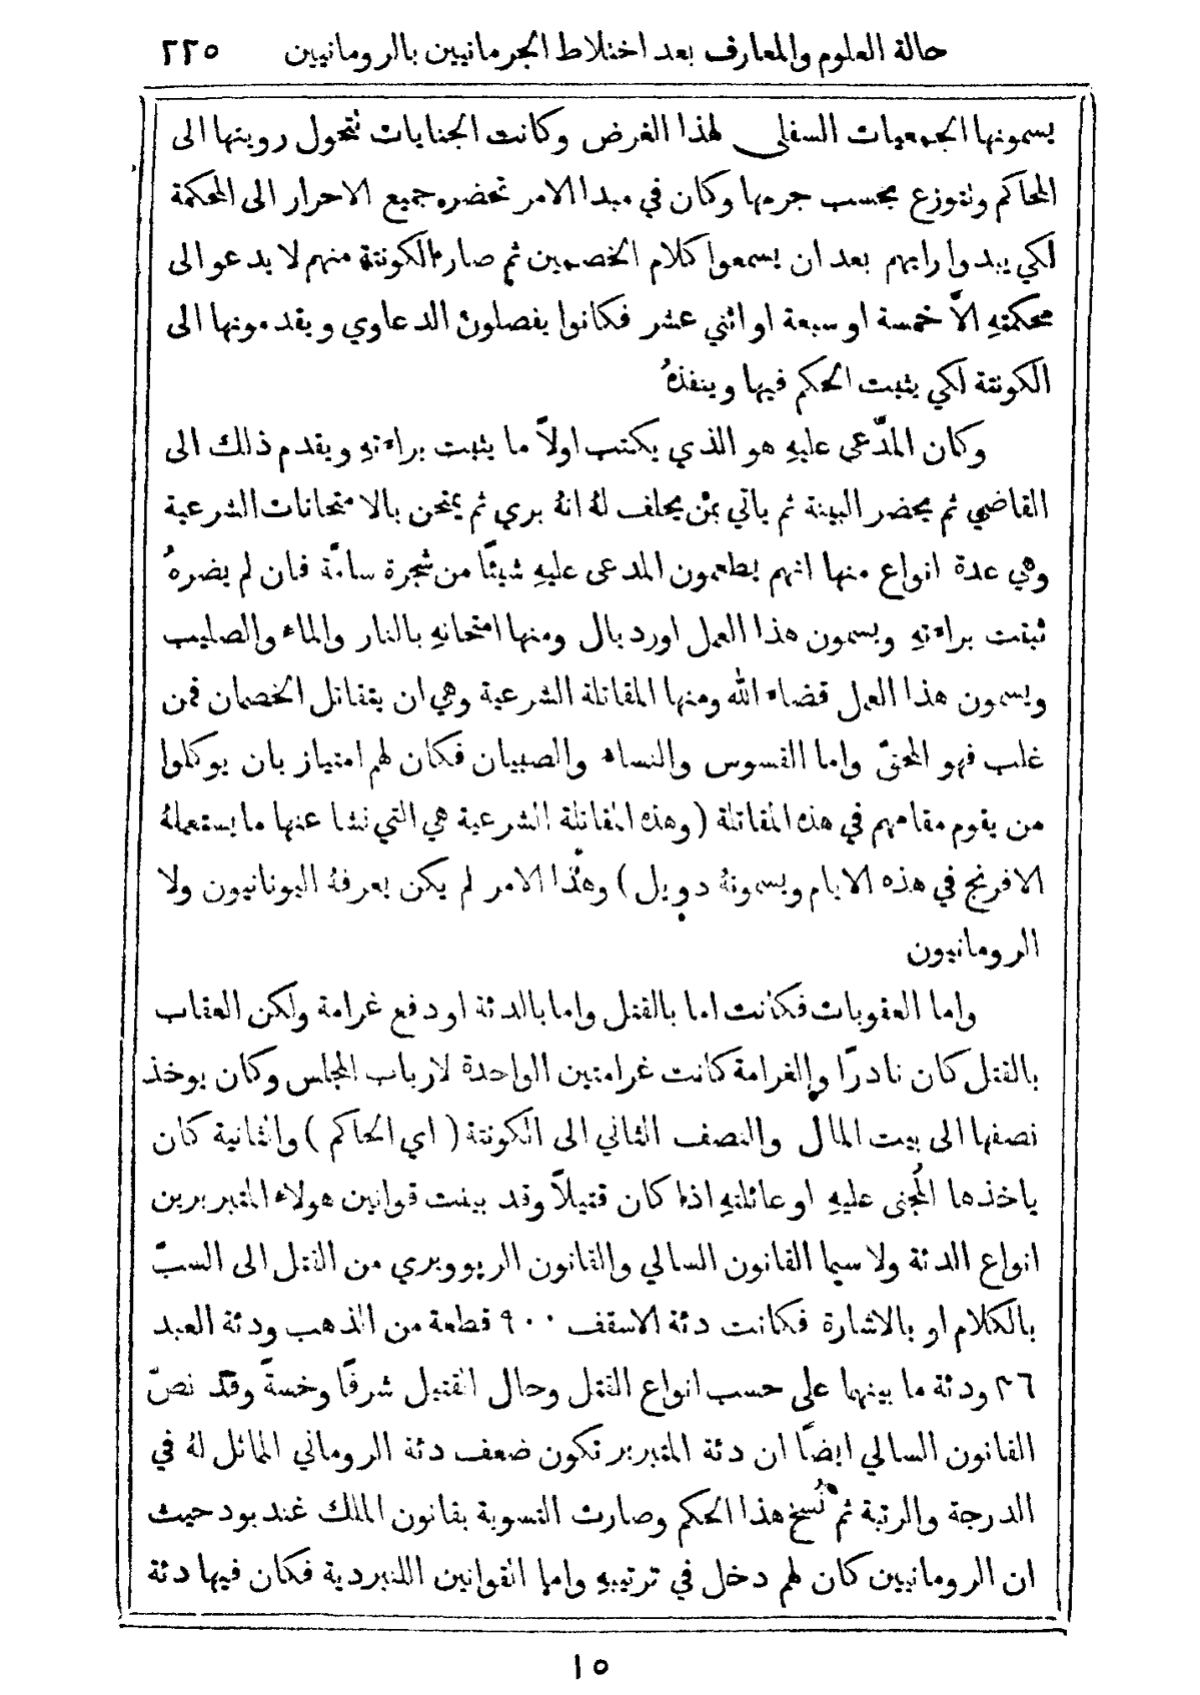 حالة العلوم والمعارف بعد اختلاط الجرمانيين بالرومانيين ٢٢٥
يسمونها الجمعيات السفلى لهذا الغرض وكانت الجنايات تتحول رويتها الى
المحاكم وتتوزع بحسب جرمها وكان في مبدا الامر تحضره جميع الاحرار الى المحكمة
لكي يبدوا رايهم بعد ان يسمعوا كلام الخصمين ثم صار الكونتة منهم لا يدعو الى
محكمتهِ الاَّ خمسة او سبعة او اثني عشر فكانوا يفصلون الدعاوي ويقدمونها الى
الكونتة لكي يثبت الحكم فيها وينفذهُ
وكان المدَّعى عليهِ هو الذي يكتب اولاً ما يثبت براءتهِ ويقدم ذلك الى
القاضي ثم يحضر البينة ثم ياتي بمنْ يحلف لهُ انهُ بري ثم يمتحن بالامتحانات الشرعية
وهي عدة انواع منها انهم يطعمون المدعى عليهِ شيئًا من شجرة سامَّة فان لم يضرهُ
ثبتت براءتهِ ويسمون هذا العمل اورد بال ومنها امتحانهِ بالنار والماء والصليب
ويسمون هذا العمل قضاء الله ومنها المقاتلة الشرعية وهي ان يتقاتل الخصمان فمن
غلب فهو المحقّ واما القسوس والنساء والصبيان فكان لهم امتياز بان يوكلوا
من يقوم مقامهم في هذه المقاتلة (وهذه المقاتلة الشرعية هي التي نشا عنها ما يستعملهُ
الافرنج في هذه الايام ويسمونهُ دويل) وهذا الامر لم يكن يعرفهُ اليونانيون ولا
الرومانيون
واما العقوبات فكانت اما بالقتل واما بالدئة او دفع غرامة ولكن العقاب
بالقتل كان نادرًا والغرامة كانت غرامتين الواحدة لارباب المجلس وكان يوخذ
نصفها الى بيت المال والنصف الثاني الى الكونتة (اي الحاكم) والثانية كان
ياخذها المُجنى عليهِ او عائلتهِ اذا كان قتيلاً وقد بينت قوانين هولاء المتبربرين
انواع الدئة ولا سيما القانون السالي والقانون الريووبري من القتل الى السبّ
بالكلام او بالاشارة فكانت دئة الاسقف ٩٠٠ قطعة من الذهب ودئة العبد
٣٦ ودئة ما بينهما على حسب انواع القتل وحال القتيل شرفًا وخسةً وقد نصّ
القانون السالي ايضًا ان دئة المتبربر تكون ضعف دئة الروماني المماثل لهُ في
الدرجة والرتبة ثم نُسخ هذا الحكم وصارت التسوية بقانون الملك غندبود حيث
ان الرومانيين كان لهم دخل في ترتيبهِ واما القوانين اللنبردية فكان فيها دئة
١٥